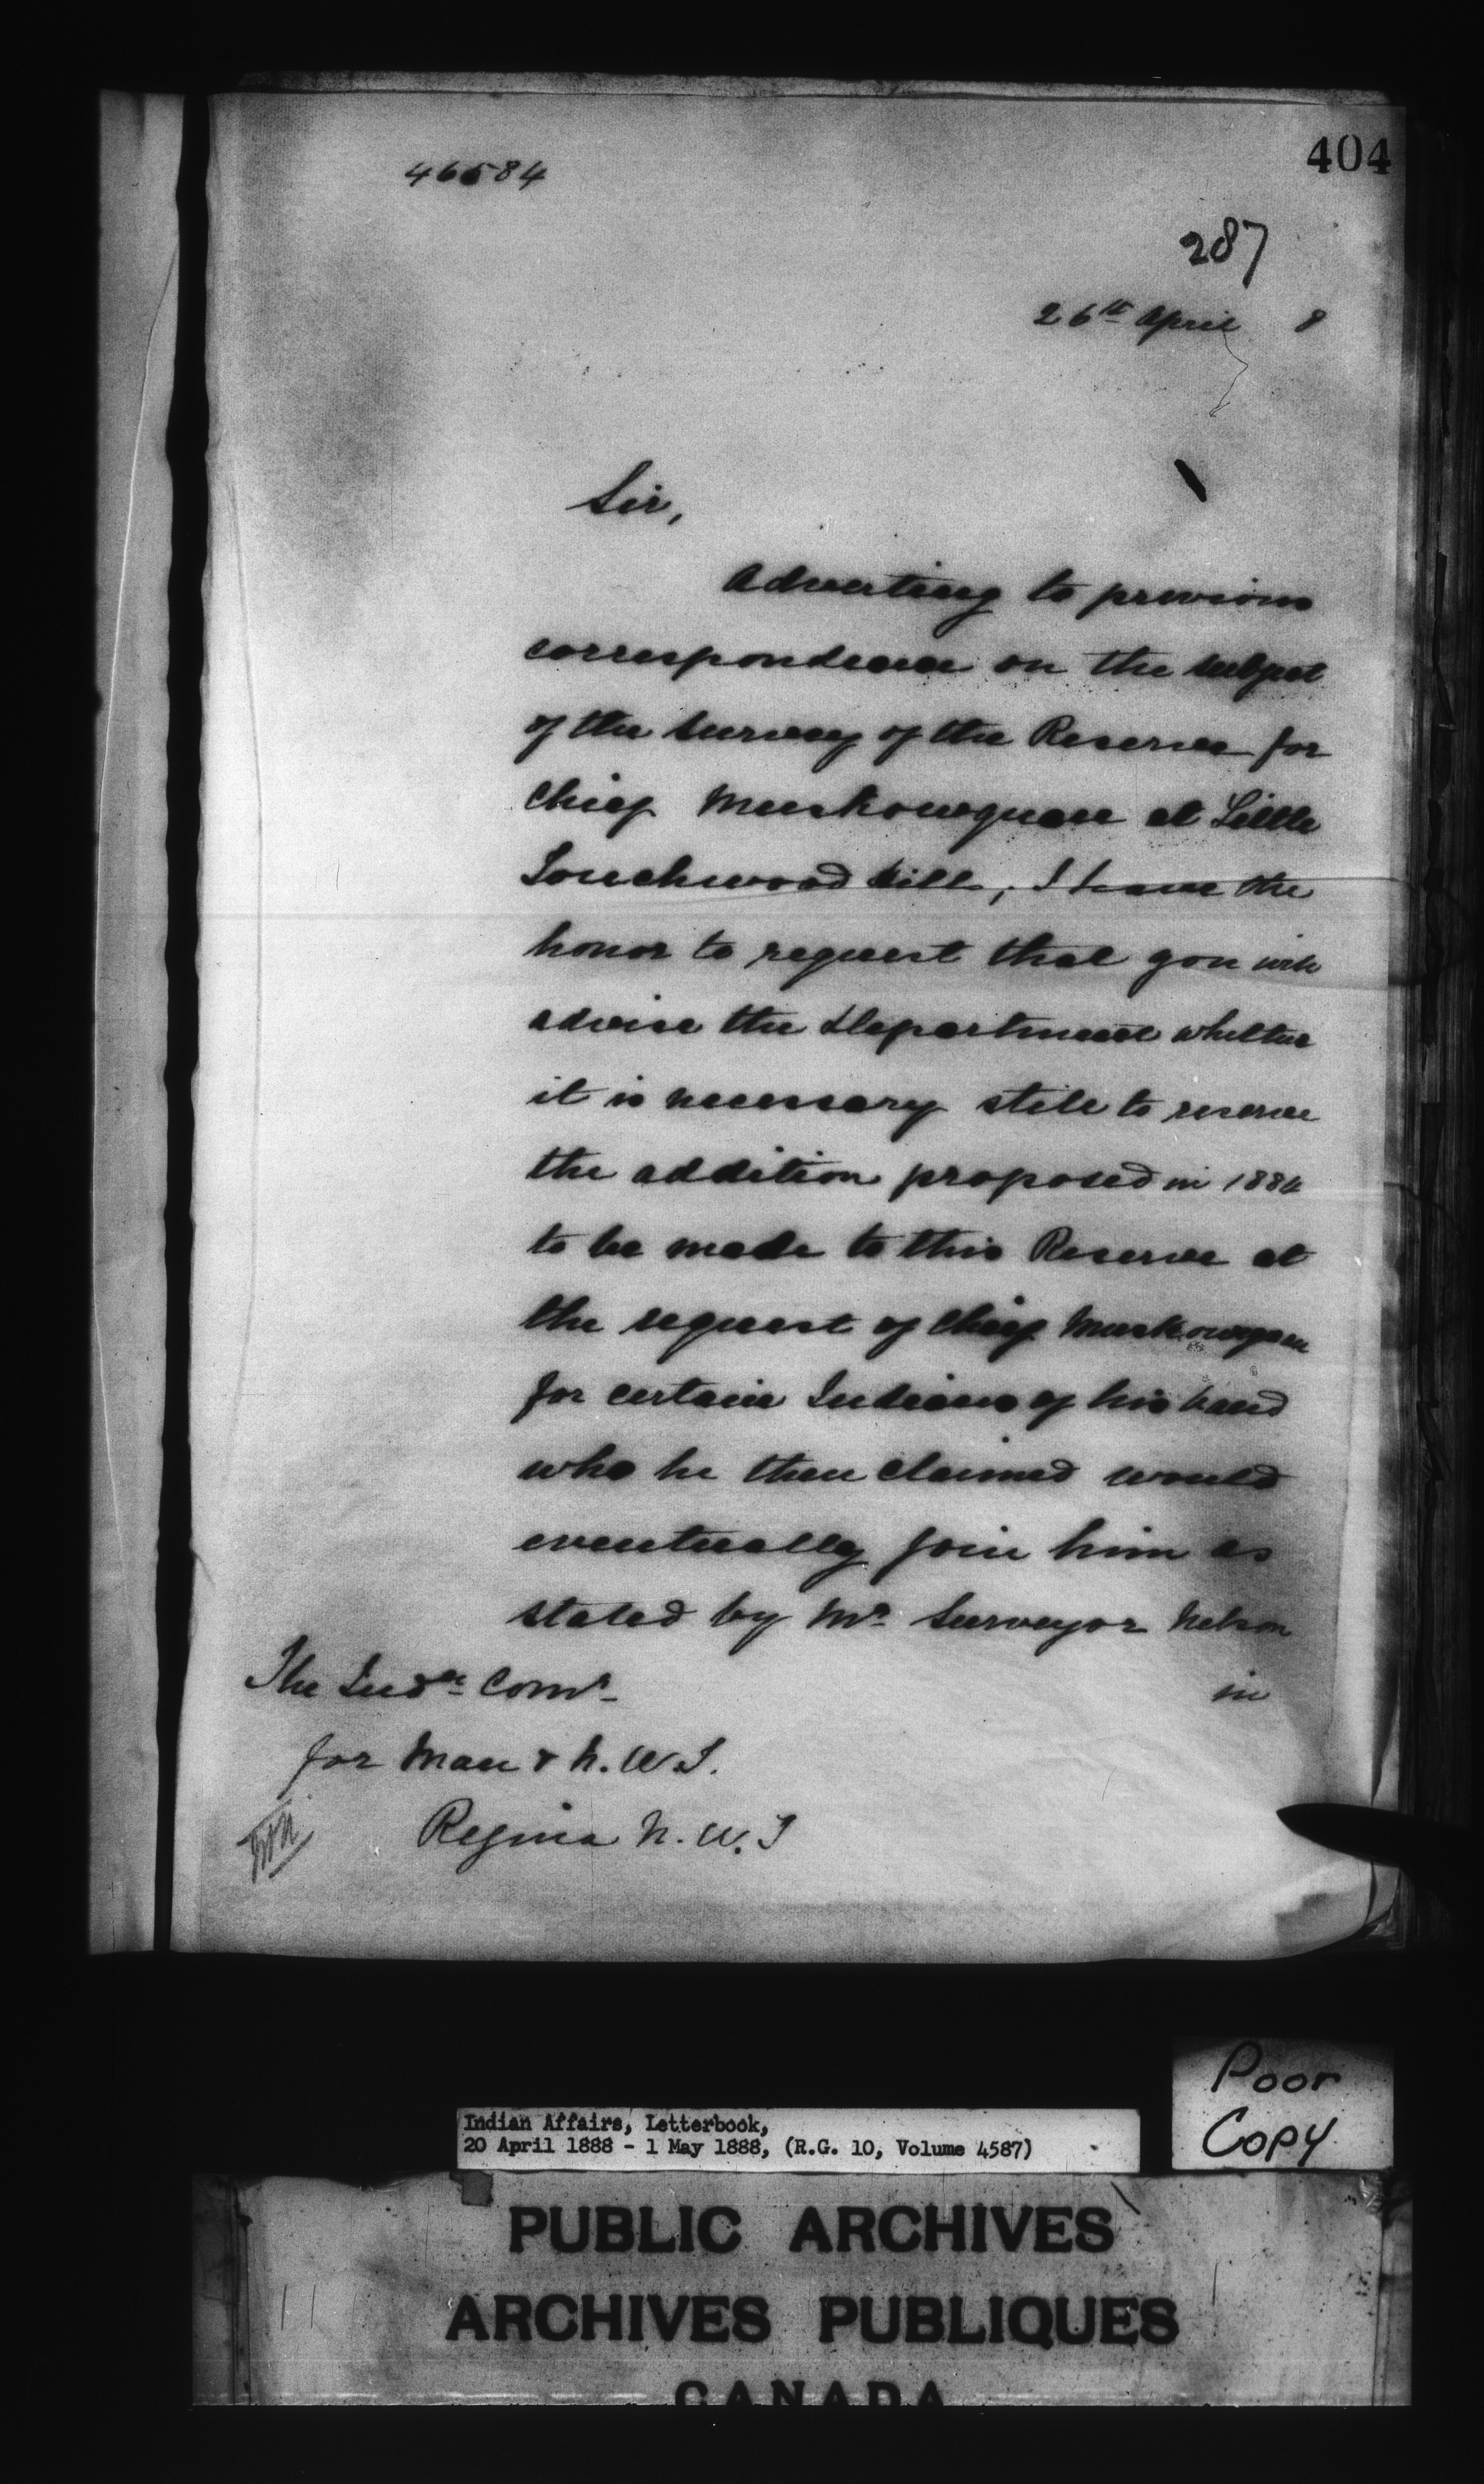 404
46584
287
26th April 8
Sir,
Adverting to previous
correspondence on the subject
of the survey of the Reserve for
Chief Muskowequan at Little
Touchwood Hills, I have the
honor to request that you will
advise the Department whether
it is necessary still to reserve
the addition proposed in 1884
to be made to this Reserve at
the request of Chief Muskowequan
for certain Indians of his band
who he then claimed would
eventually join him as
stated by Mr Surveyor Nelson
in
The Indn Comr
for Man & N.W.T.
Regina N.W.T
Poor
Copy
Indian Affairs, Letterbook,
20 April 1888 - 1 May 1888, (R.G. 10, Volume 4587)
PUBLIC ARCHIVES
ARCHIVES PUBLIQUES
CANADA